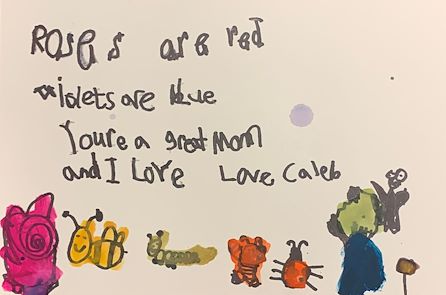 Roses are red
violets are blue
Youre a great Mom
and I Love Love Caleb